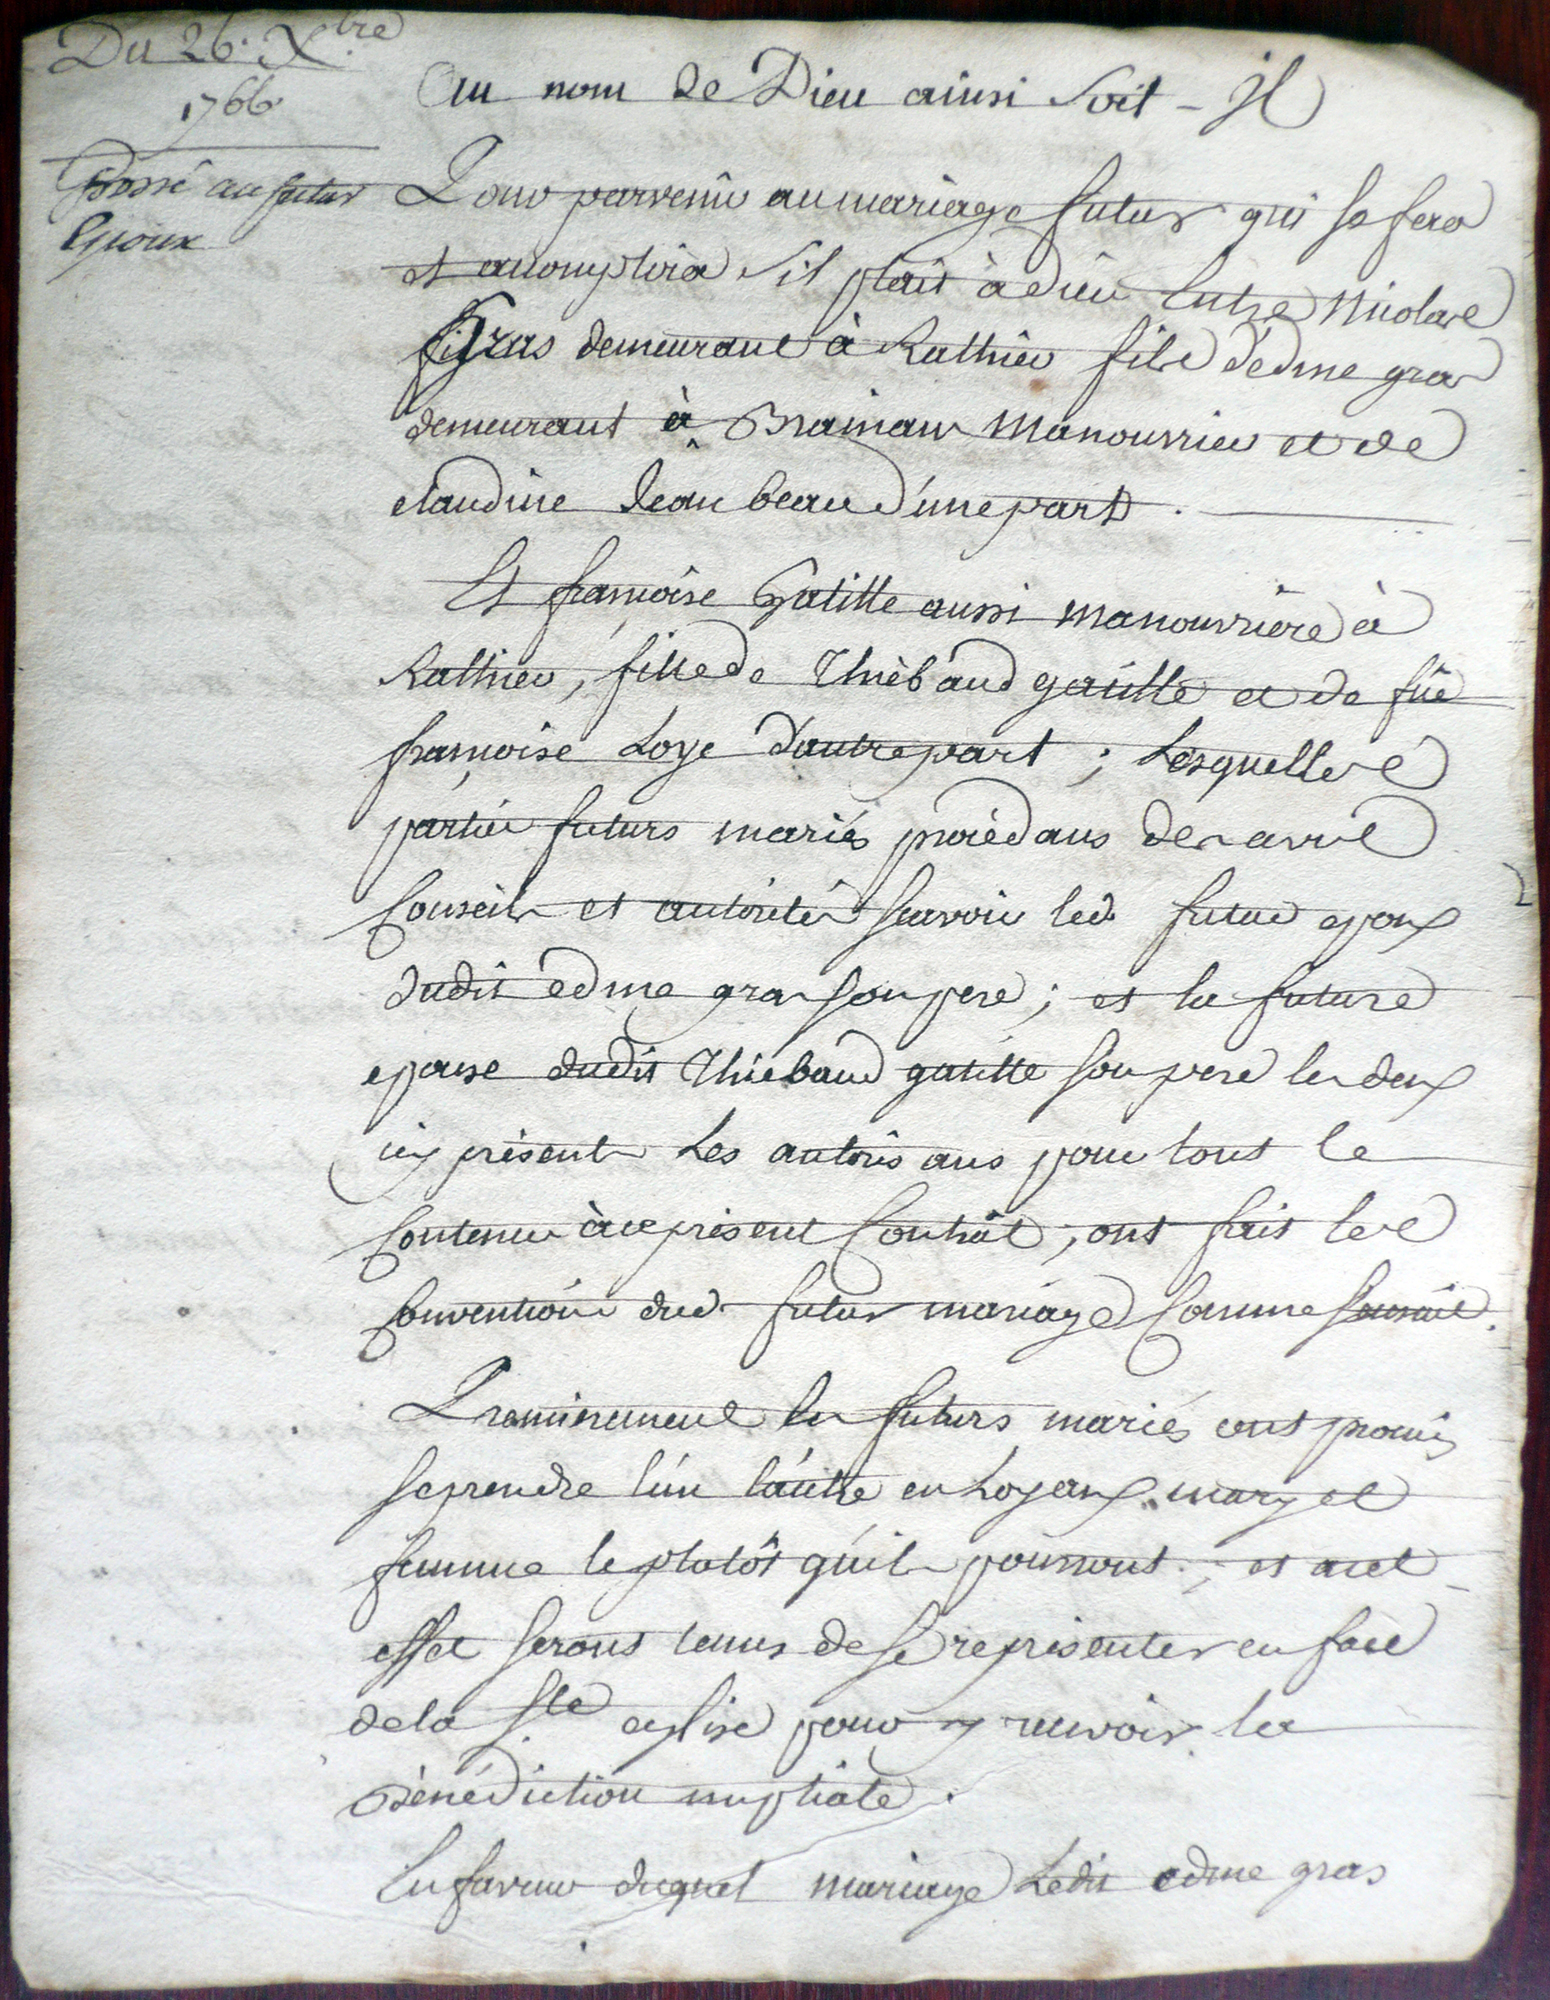 Du 26. Xbre
1766.
Grossé au futur
Epoux
Au nom de Dieu ainsi Soit-Il
Pour parvenir au mariage futur qui se fera
et accomplira s'il plait à dieu Entre Nicolas
Gras demeurant à Rathier fils d'edme gras
demeurant à Brainans Manouvrier et de
claudine Jeanbeau d'une part.
Et françoise Gatille aussi manouvrière à
Rathier, fille de Thiébaud gatille et de füe
françoise Loye d'autre part; Lesquelles
parties futurs mariés procédans des avis
Conseils et autorités scavoir led. futur epoux
dudit edme gras son pere; et la future
epouse dudit Thiébaud gatille son pere les deux
icy présents Les autorisans pour tout le
Contenu à ce présent Contrat, ont fait les
Conventions dud. futur mariage Comme s'ensuit.
Premierement les futurs mariés ont promis
se prendre l'un l'autre en Loyaux mary et
femme le plutôt qu'ils pourront; et a cet
effet seront tenus de se représenter en face
de la Ste eglise pour y recevoir la
Bénédiction nuptiale.
En faveur duquel mariage Ledit edme gras